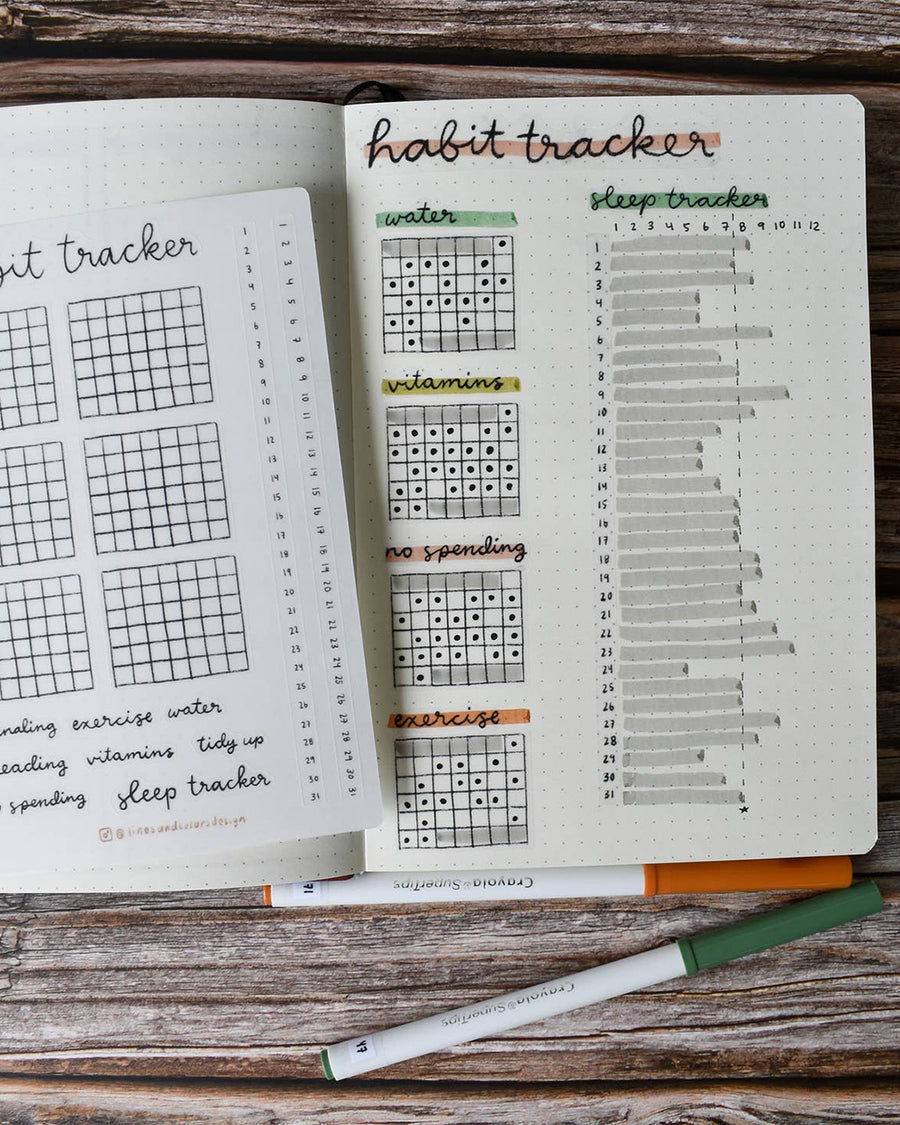 habit tracker
water
vitamins
no spending
exercise
sleep tracker
1 2 3 4 5 6 7 8 9 10 11 12
1
2
3
4
5
6
7
8
9
10
11
12
13
14
15
16
17
18
19
20
21
22
23
24
25
26
27
28
29
30
31
tracker
1
2
3
4
5
6
7
8
9
10
11
12
13
14
15
16
17
18
19
20
21
22
23
24
25
26
27
28
29
30
31
1
2
3
4
5
6
7
8
9
10
11
12
13
14
15
16
17
18
19
20
21
22
23
24
25
26
27
28
29
30
31
exercise water
vitamins tidy up
spending sleep tracker
@linesandcolorsdesign
Crayola® SuperTips
Crayola® SuperTips